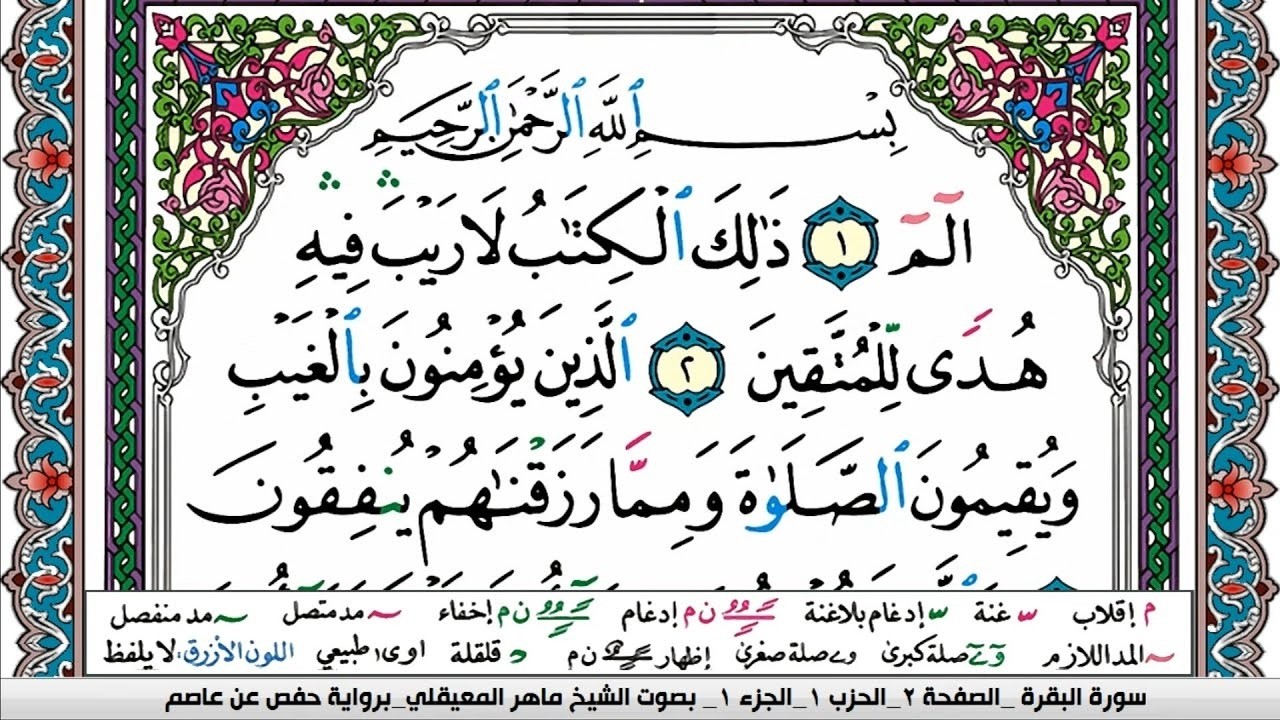 بِسْمِ ٱللَّهِ ٱلرَّحْمَٰنِ ٱلرَّحِيمِ
الٓمٓ ١ ذَٰلِكَ ٱلْكِتَٰبُ لَا رَيْبَ ۛ فِيهِ ۛ
هُدًى لِّلْمُتَّقِينَ ٢ ٱلَّذِينَ يُؤْمِنُونَ بِٱلْغَيْبِ
وَيُقِيمُونَ ٱلصَّلَوٰةَ وَمِمَّا رَزَقْنَٰهُمْ يُنفِقُونَ
م إقلاب ـّ غنة ـّ إدغام بلاغنة ن م إدغام ن م إخفاء ~ مد متصل ~ مد منفصل
~ المد اللازم صلة كبرى صلة صغرى إظهار ن م قلقلة اوى طبيعي اللون الأزرق: لا يلفظ
سورة البقرة _الصفحة ٢_الحزب ١_الجزء ١_ بصوت الشيخ ماهر المعيقلي_برواية حفص عن عاصم